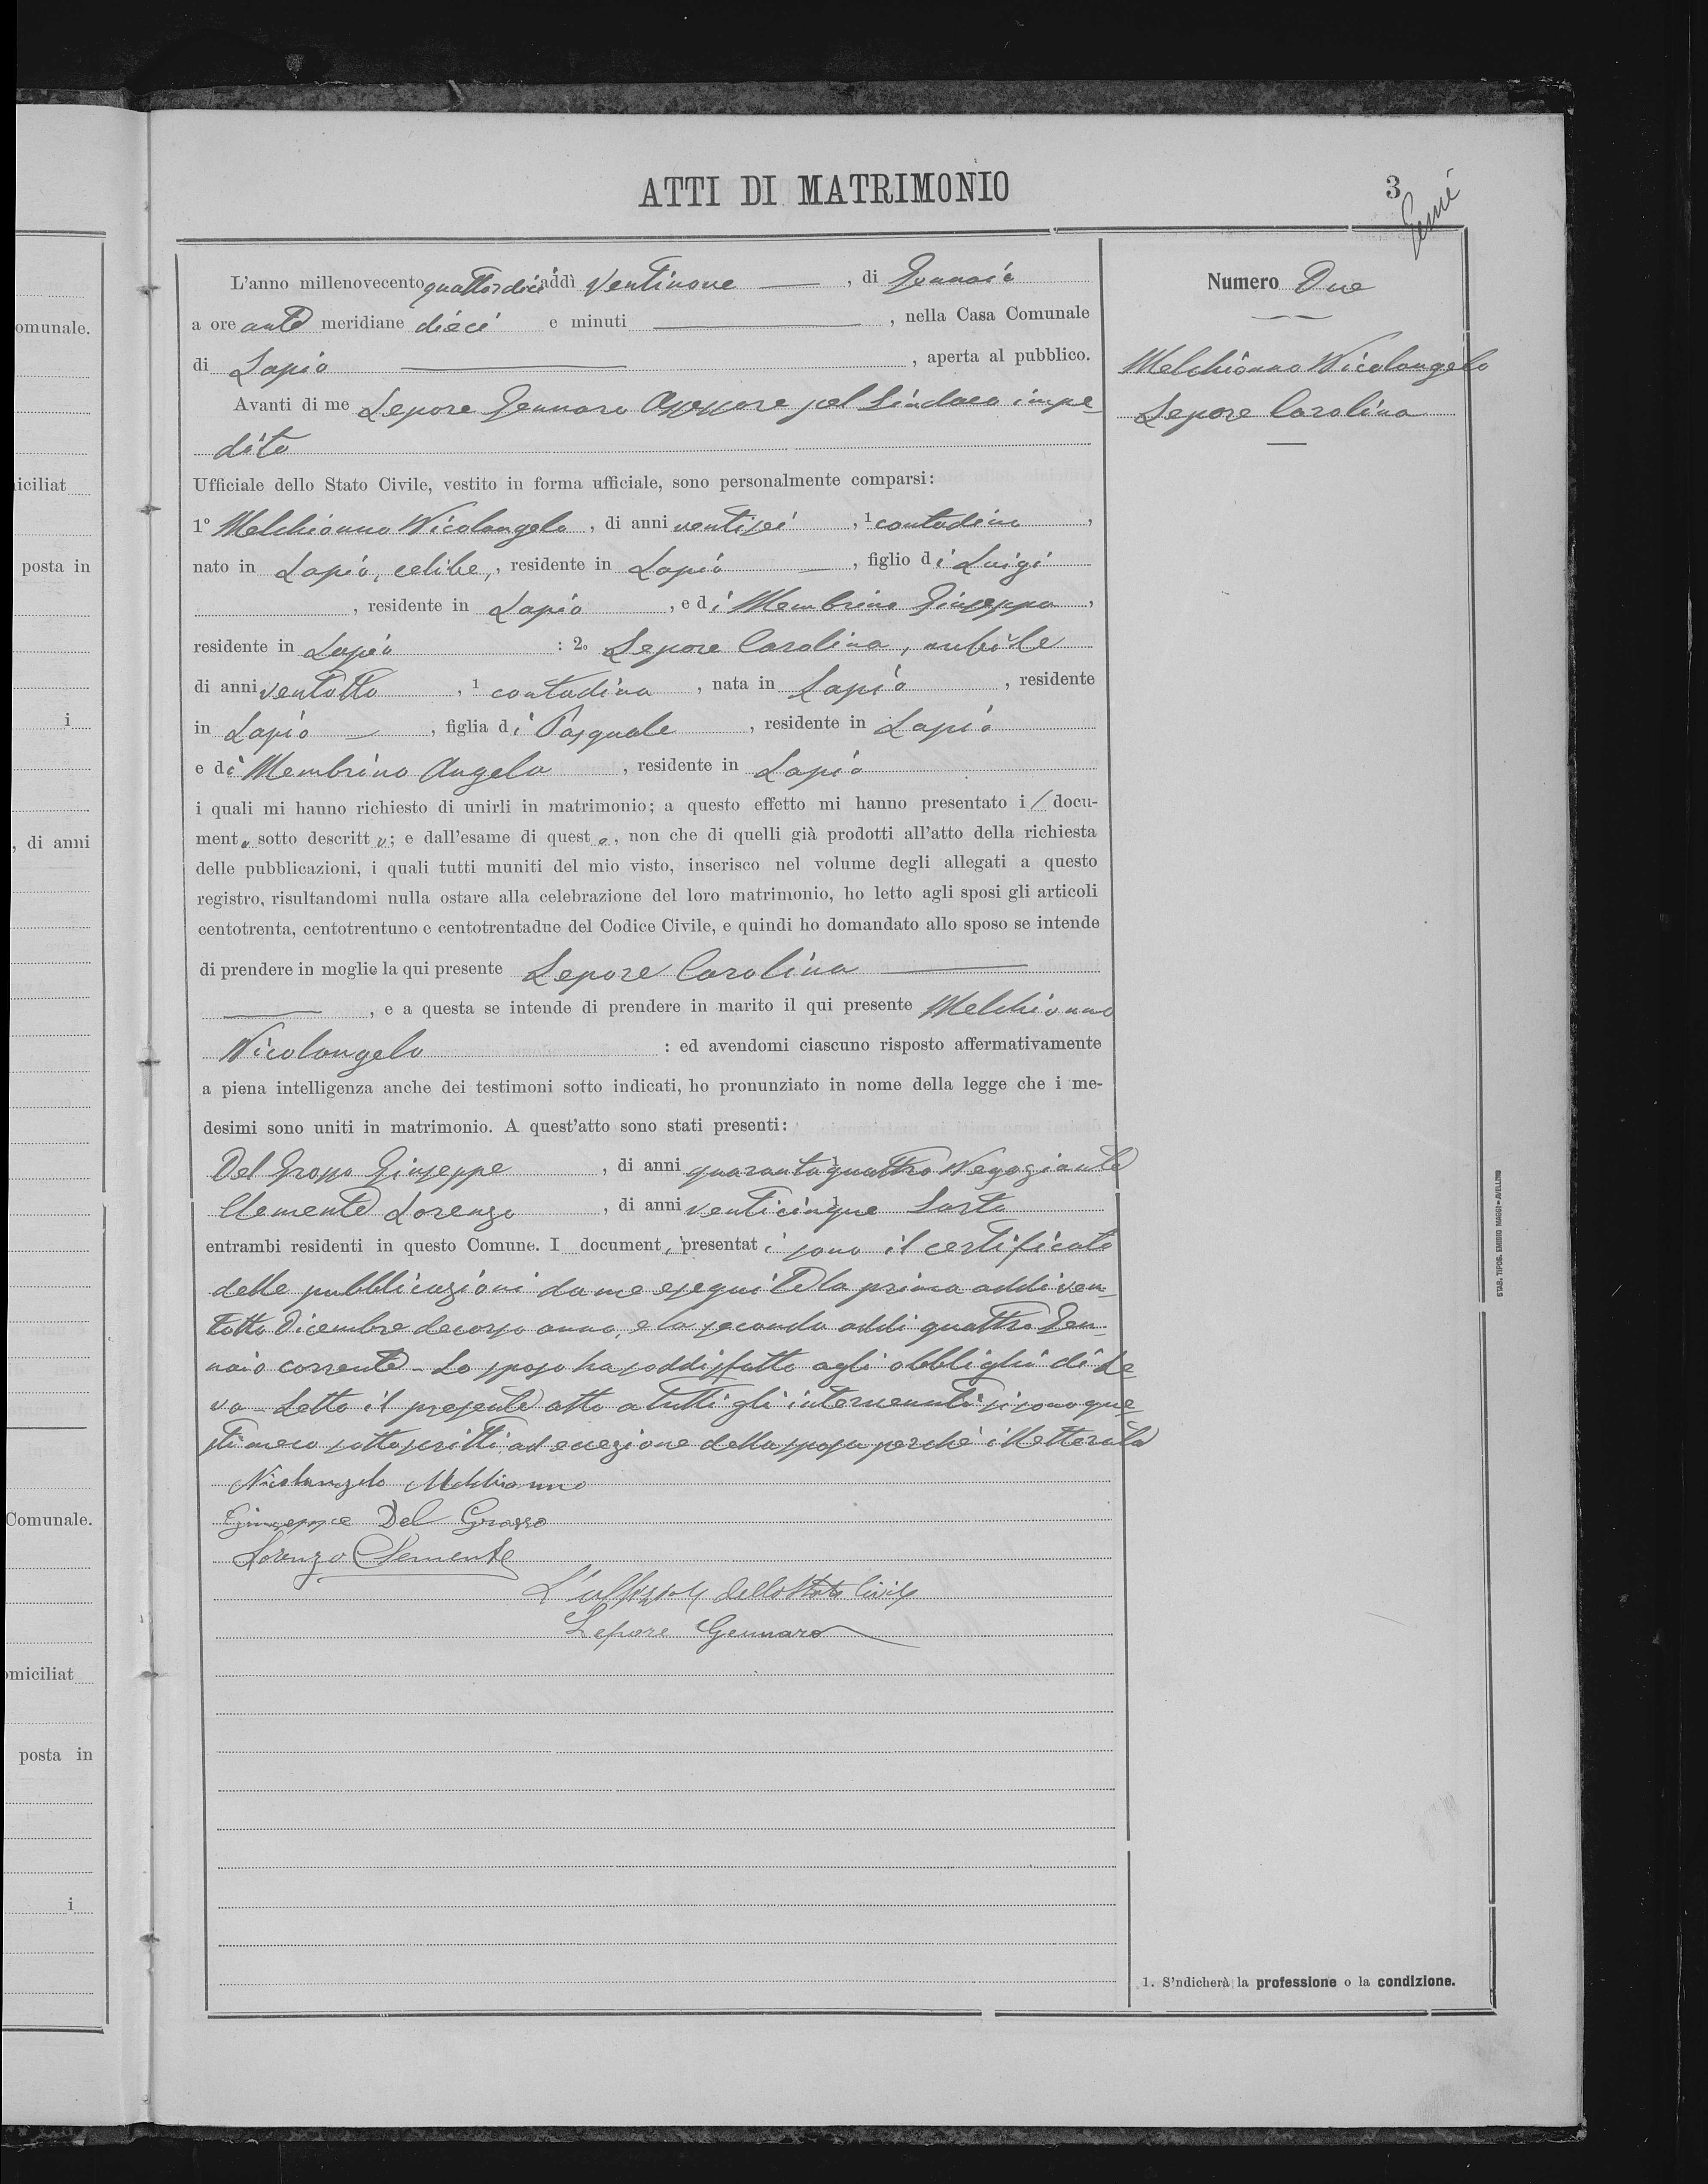 ATTI DI MATRIMONIO
3
L'anno millenovecento quattordici addì ventinove, di Gennaio
a ore ante meridiane dieci e minuti , nella Casa Comunale
di Lapio , aperta al pubblico.
Avanti di me Lepore Gennaro Assessore pel Sindaco impe
dito
Ufficiale dello Stato Civile, vestito in forma ufficiale, sono personalmente comparsi:
1° Melchionno Nicolangelo, di anni ventisei, ¹ contadino,
nato in Lapio, celibe, residente in Lapio, figlio di Luigi
, residente in Lapio, e di Membrino Giuseppa,
residente in Lapio : 2o Lepore Carolina, nubile
di anni ventotto, ¹ contadina, nata in Lapio, residente
in Lapio, figlia di Pasquale, residente in Lapio
e di Membrino Angela, residente in Lapio
i quali mi hanno richiesto di unirli in matrimonio; a questo effetto mi hanno presentato i/ docu-
mento sotto descritto; e dall'esame di questo, non che di quelli già prodotti all'atto della richiesta
delle pubblicazioni, i quali tutti muniti del mio visto, inserisco nel volume degli allegati a questo
registro, risultandomi nulla ostare alla celebrazione del loro matrimonio, ho letto agli sposi gli articoli
centotrenta, centotrentuno e centotrentadue del Codice Civile, e quindi ho domandato allo sposo se intende
di prendere in moglie la qui presente Lepore Carolina
, e a questa se intende di prendere in marito il qui presente Melchionno
Nicolangelo : ed avendomi ciascuno risposto affermativamente
a piena intelligenza anche dei testimoni sotto indicati, ho pronunziato in nome della legge che i me-
desimi sono uniti in matrimonio. A quest'atto sono stati presenti:
Del Grosso Giuseppe, di anni quarantaquattro Negoziante
Clemente Lorenzo, di anni venticinque Sarto
entrambi residenti in questo Comune. I documenti presentati sono il certificato
delle pubblicazioni da me eseguite la prima addi ven
totto Dicembre decorso anno, e la seconda addi quattro Gen
naio corrente - Lo sposo ha soddisfatto agli obblighi di Le
va - Letto il presente atto a tutti gli intervenuti si sono que
sti meco sottoscritti ad eccezione della sposa perchè illetterata
Nicolangelo Melchionno
Giuseppe Del Grosso
Lorenzo Clemente
L'uffiziale dello Stato Civile
Lepore Gennaro
Numero Due
Melchionno Nicolangelo
Lepore Carolina
1. S'ndicherà la professione o la condizione.
STAB. TIPOG. EMIDIO MAGGI - AVELLINO
omunale.
iciliat
posta in
i
, di anni
Comunale.
omiciliat
posta in
i